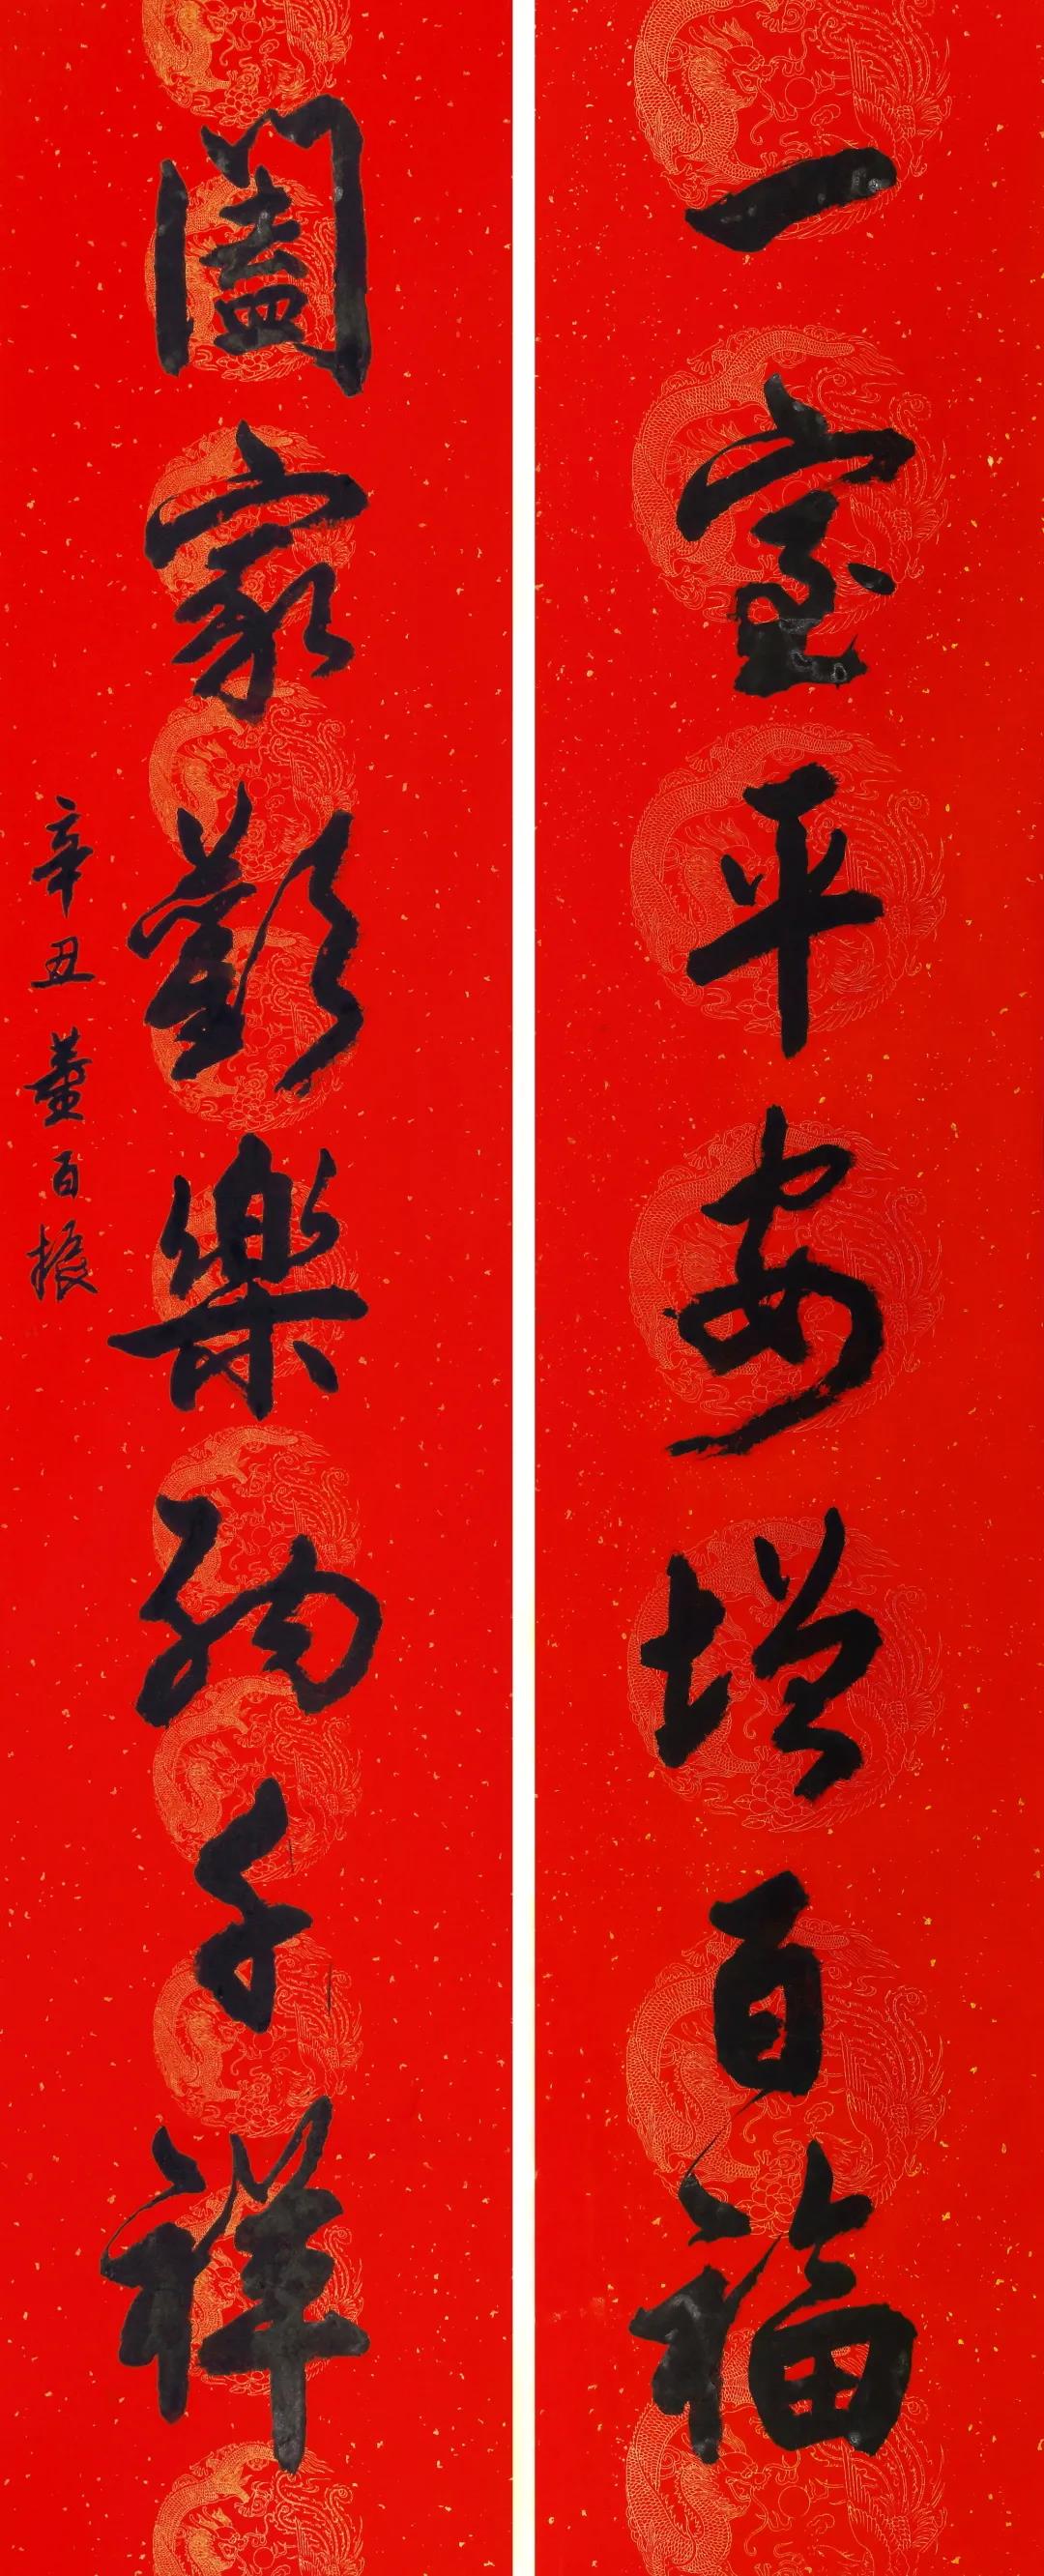 一室平安增百福
闔家歡樂納千祥
辛丑董百振